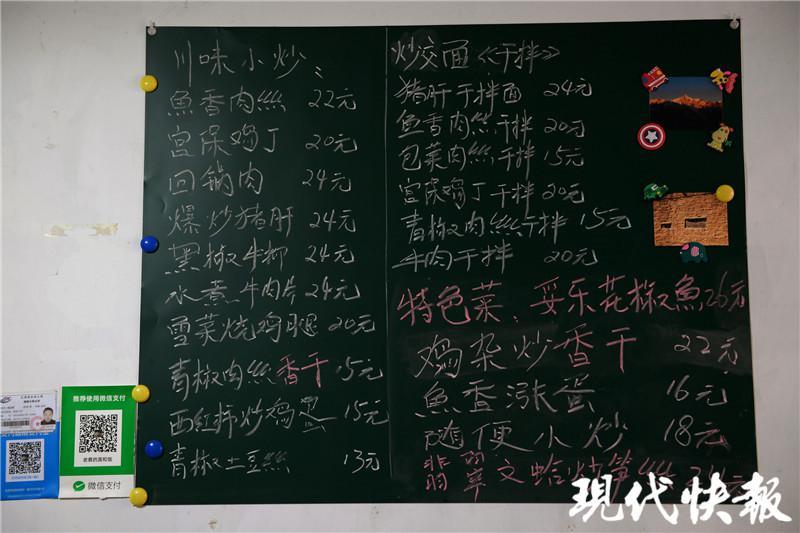 川味小炒:
魚香肉絲 22元
宫保鸡丁 20元
回锅肉 24元
爆炒猪肝 24元
黑椒牛柳 24元
水煮牛肉片 24元
雪菜烧鸡腿 20元
青椒肉絲香干 15元
西红柿炒鸡蛋 15元
青椒土豆絲 13元
炒交面《干拌》
猪肝干拌面 24元
鱼香肉絲干拌 20元
包菜肉絲干拌 15元
宫保鸡丁干拌 20元
青椒肉絲干拌 15元
牛肉干拌 20元
特色菜:妥乐花椒魚 26元
鸡杂炒香干 22元
魚香涨蛋 16元
随便小炒 18元
翡翠文蛤炒笋絲
推荐使用微信支付
微信支付
現代快報